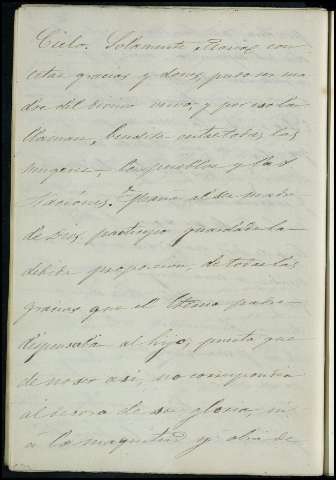 Cielo. Solamente Maria, con
estas gracias y dones, pudo ser ma
dre del divino vervo, y por eso la
llaman, bendita entre todas las
mugeres los pueblos y las
Naciones. Maria al ser madre
de Dios, participo guardada la
debida proporcion, de todas las
gracias que el Eterno padre
dispensaba al hijo, puesto que
de no ser asi, no corresponderia
al tesoro de su gloria, ni
a la magnitud y obra de